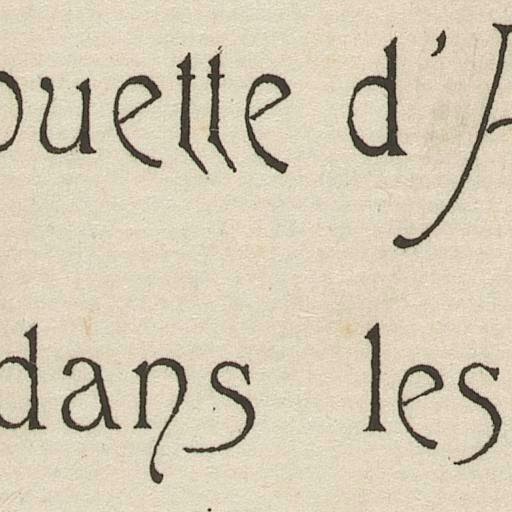 ouette d'A
dans les